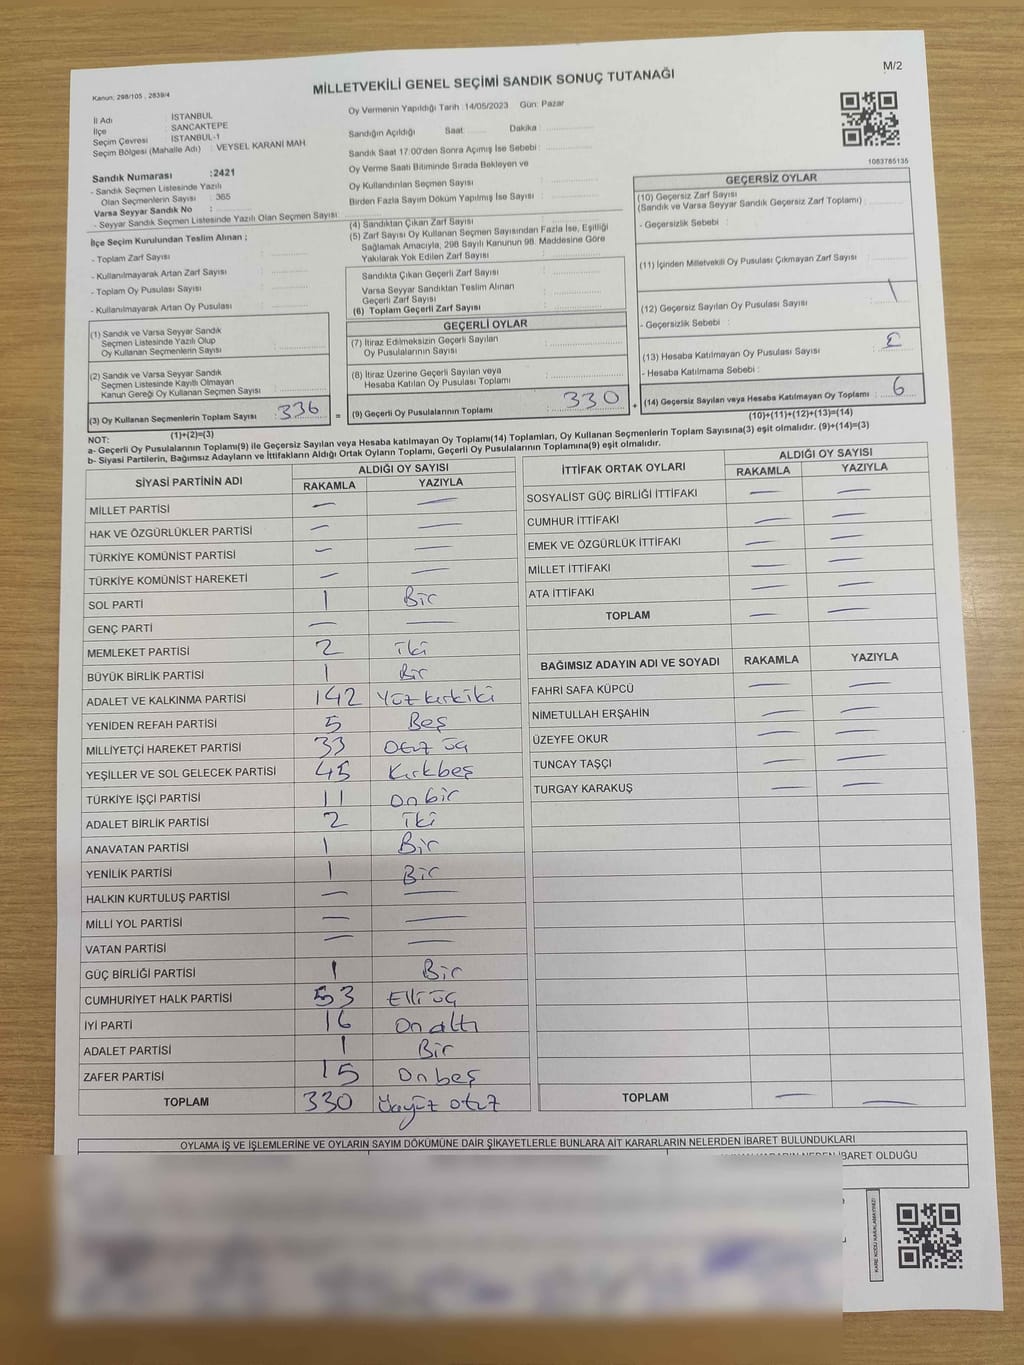 M/2
MİLLETVEKİLİ GENEL SEÇİMİ SANDIK SONUÇ TUTANAĞI
Kanun; 298/105 , 2839/4
İl Adı : İSTANBUL
İlçe : SANCAKTEPE
Seçim Çevresi : İSTANBUL-1
Seçim Bölgesi (Mahalle Adı) : VEYSEL KARANİ MAH
Sandık Numarası :2421
- Sandık Seçmen Listesinde Yazılı
Olan Seçmenlerin Sayısı : 365
Varsa Seyyar Sandık No :
- Seyyar Sandık Seçmen Listesinde Yazılı Olan Seçmen Sayısı:
İlçe Seçim Kurulundan Teslim Alınan ;
- Toplam Zarf Sayısı :
- Kullanılmayarak Artan Zarf Sayısı :
- Toplam Oy Pusulası Sayısı :
- Kullanılmayarak Artan Oy Pusulası :
(1) Sandık ve Varsa Seyyar Sandık
Seçmen Listesinde Yazılı Olup
Oy Kullanan Seçmenlerin Sayısı :
(2) Sandık ve Varsa Seyyar Sandık
Seçmen Listesinde Kayıtlı Olmayan
Kanun Gereği Oy Kullanan Seçmen Sayısı :
(3) Oy Kullanan Seçmenlerin Toplam Sayısı : 336 =
(1)+(2)=(3)
Oy Vermenin Yapıldığı Tarih :14/05/2023 Gün: Pazar
Sandığın Açıldığı Saat: Dakika :
Sandık Saat 17:00'den Sonra Açımış İse Sebebi :
Oy Verme Saati Bitiminde Sırada Bekleyen ve
Oy Kullandırılan Seçmen Sayısı :
Birden Fazla Sayım Döküm Yapılmış İse Sayısı :
(4) Sandıktan Çıkan Zarf Sayısı :
(5) Zarf Sayısı Oy Kullanan Seçmen Sayısından Fazla İse, Eşitliği
Sağlamak Amacıyla, 298 Sayılı Kanunun 98. Maddesine Göre
Yakılarak Yok Edilen Zarf Sayısı :
Sandıkta Çıkan Geçerli Zarf Sayısı :
Varsa Seyyar Sandıktan Teslim Alınan
Geçerli Zarf Sayısı :
(6) Toplam Geçerli Zarf Sayısı :
GEÇERLİ OYLAR
(7) İtiraz Edilmeksizin Geçerli Sayılan
Oy Pusulalarının Sayısı :
(8) İtiraz Üzerine Geçerli Sayılan veya
Hesaba Katılan Oy Pusulası Toplamı :
(9) Geçerli Oy Pusulalarının Toplamı : 330 +
1083785135
GEÇERSİZ OYLAR
(10) Geçersiz Zarf Sayısı
(Sandık ve Varsa Sandık Geçersiz Zarf Toplamı) :
- Geçersizlik Sebebi :
(11) İçinden Milletvekili Oy Pusulası Çıkmayan Zarf Sayısı :
(12) Geçersiz Sayılan Oy Pusulası Sayısı : 1
- Geçersizlik Sebebi :
(13) Hesaba Katılmayan Oy Pusulası Sayısı :
- Hesaba Katılmama Sebebi :
(14) Geçersiz Sayılan veya Hesaba Katılmayan Oy Toplamı : 6
(10)+(11)+(12)+(13)=(14)
NOT:
a- Geçerli Oy Pusulalarının Toplamı(9) ile Geçersiz Sayılan veya Hesaba katılmayan Oy Toplamı(14) Toplamları, Oy Kullanan Seçmenlerin Toplam Sayısına(3) eşit olmalıdır. (9)+(14)=(3)
b- Siyasi Partilerin, Bağımsız Adayların ve İttifakların Aldığı Ortak Oyların Toplamı, Geçerli Oy Pusulalarının Toplamına(9) eşit olmalıdır.
SİYASİ PARTİNİN ADI ALDIĞI OY SAYISI
RAKAMLA YAZIYLA
MİLLET PARTİSİ — —
HAK VE ÖZGÜRLÜKLER PARTİSİ — —
TÜRKİYE KOMÜNİST PARTİSİ — —
TÜRKİYE KOMÜNİST HAREKETİ — —
SOL PARTİ 1 Bir
GENÇ PARTİ — —
MEMLEKET PARTİSİ 2 iki
BÜYÜK BİRLİK PARTİSİ 1 Bir
ADALET VE KALKINMA PARTİSİ 142 Yüz kırk iki
YENİDEN REFAH PARTİSİ 5 Beş
MİLLİYETÇİ HAREKET PARTİSİ 33 Otuz üç
YEŞİLLER VE SOL GELECEK PARTİSİ 45 Kırkbeş
TÜRKİYE İŞÇİ PARTİSİ 11 On bir
ADALET BİRLİK PARTİSİ 2 iki
ANAVATAN PARTİSİ 1 Bir
YENİLİK PARTİSİ 1 Bir
HALKIN KURTULUŞ PARTİSİ — —
MİLLİ YOL PARTİSİ — —
VATAN PARTİSİ — —
GÜÇ BİRLİĞİ PARTİSİ 1 Bir
CUMHURİYET HALK PARTİSİ 53 Elli üç
İYİ PARTİ 16 On altı
ADALET PARTİSİ 1 Bir
ZAFER PARTİSİ 15 On beş
TOPLAM 330 Üçyüz otuz
İTTİFAK ORTAK OYLARI ALDIĞI OY SAYISI
RAKAMLA YAZIYLA
SOSYALİST GÜÇ BİRLİĞİ İTTİFAKI — —
CUMHUR İTTİFAKI — —
EMEK VE ÖZGÜRLÜK İTTİFAKI — —
MİLLET İTTİFAKI — —
ATA İTTİFAKI — —
TOPLAM — —
BAĞIMSIZ ADAYIN ADI VE SOYADI RAKAMLA YAZIYLA
FAHRİ SAFA KÜPCÜ — —
NİMETULLAH ERŞAHİN — —
ÜZEYFE OKUR — —
TUNCAY TAŞÇI — —
TURGAY KARAKUŞ — —
TOPLAM — —
OYLAMA İŞ VE İŞLEMLERİNE VE OYLARIN SAYIM DÖKÜMÜNE DAİR ŞİKAYETLERLE BUNLARA AİT KARARLARIN NELERDEN İBARET BULUNDUKLARI
KARARIN NEDEN İBARET OLDUĞU